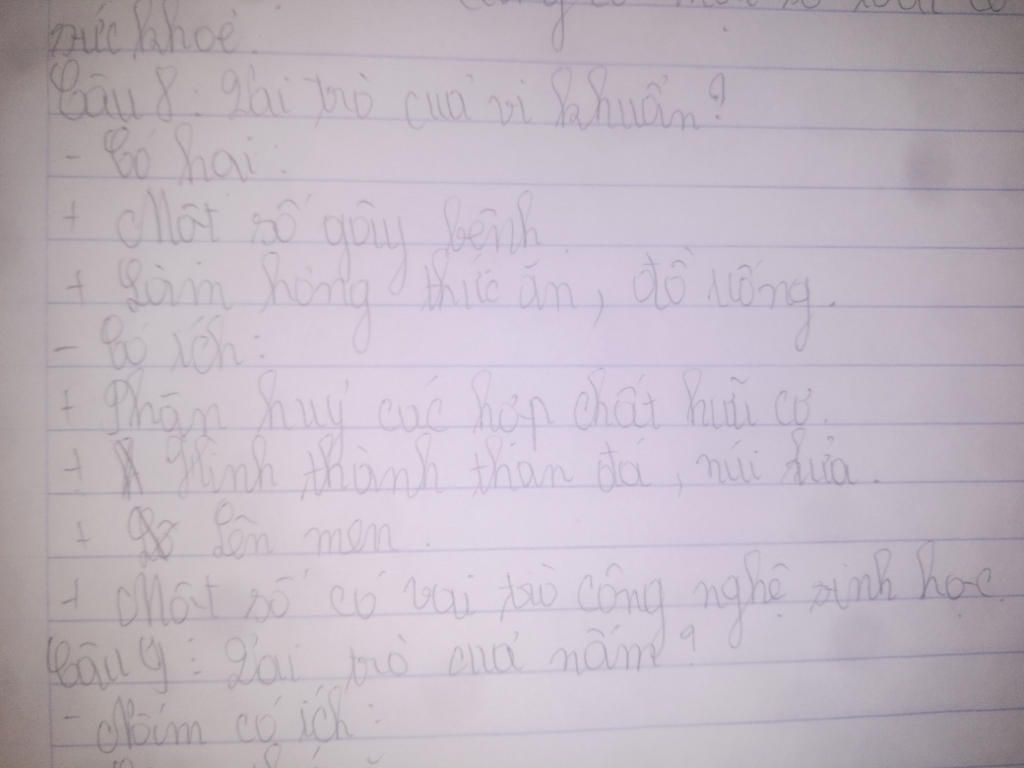 sức khoẻ.
Câu 8: Vai trò của vi khuẩn?
- Có hại:
+ Một số gây bệnh
+ Làm hỏng thức ăn, đồ uống.
- Có ích:
+ Phân huỷ các hợp chất hữu cơ.
+ Hình thành than đá, núi lửa.
+ Lên men.
+ Một số có vai trò công nghệ sinh học.
Câu 9: Vai trò của nấm?
- Nấm có ích: